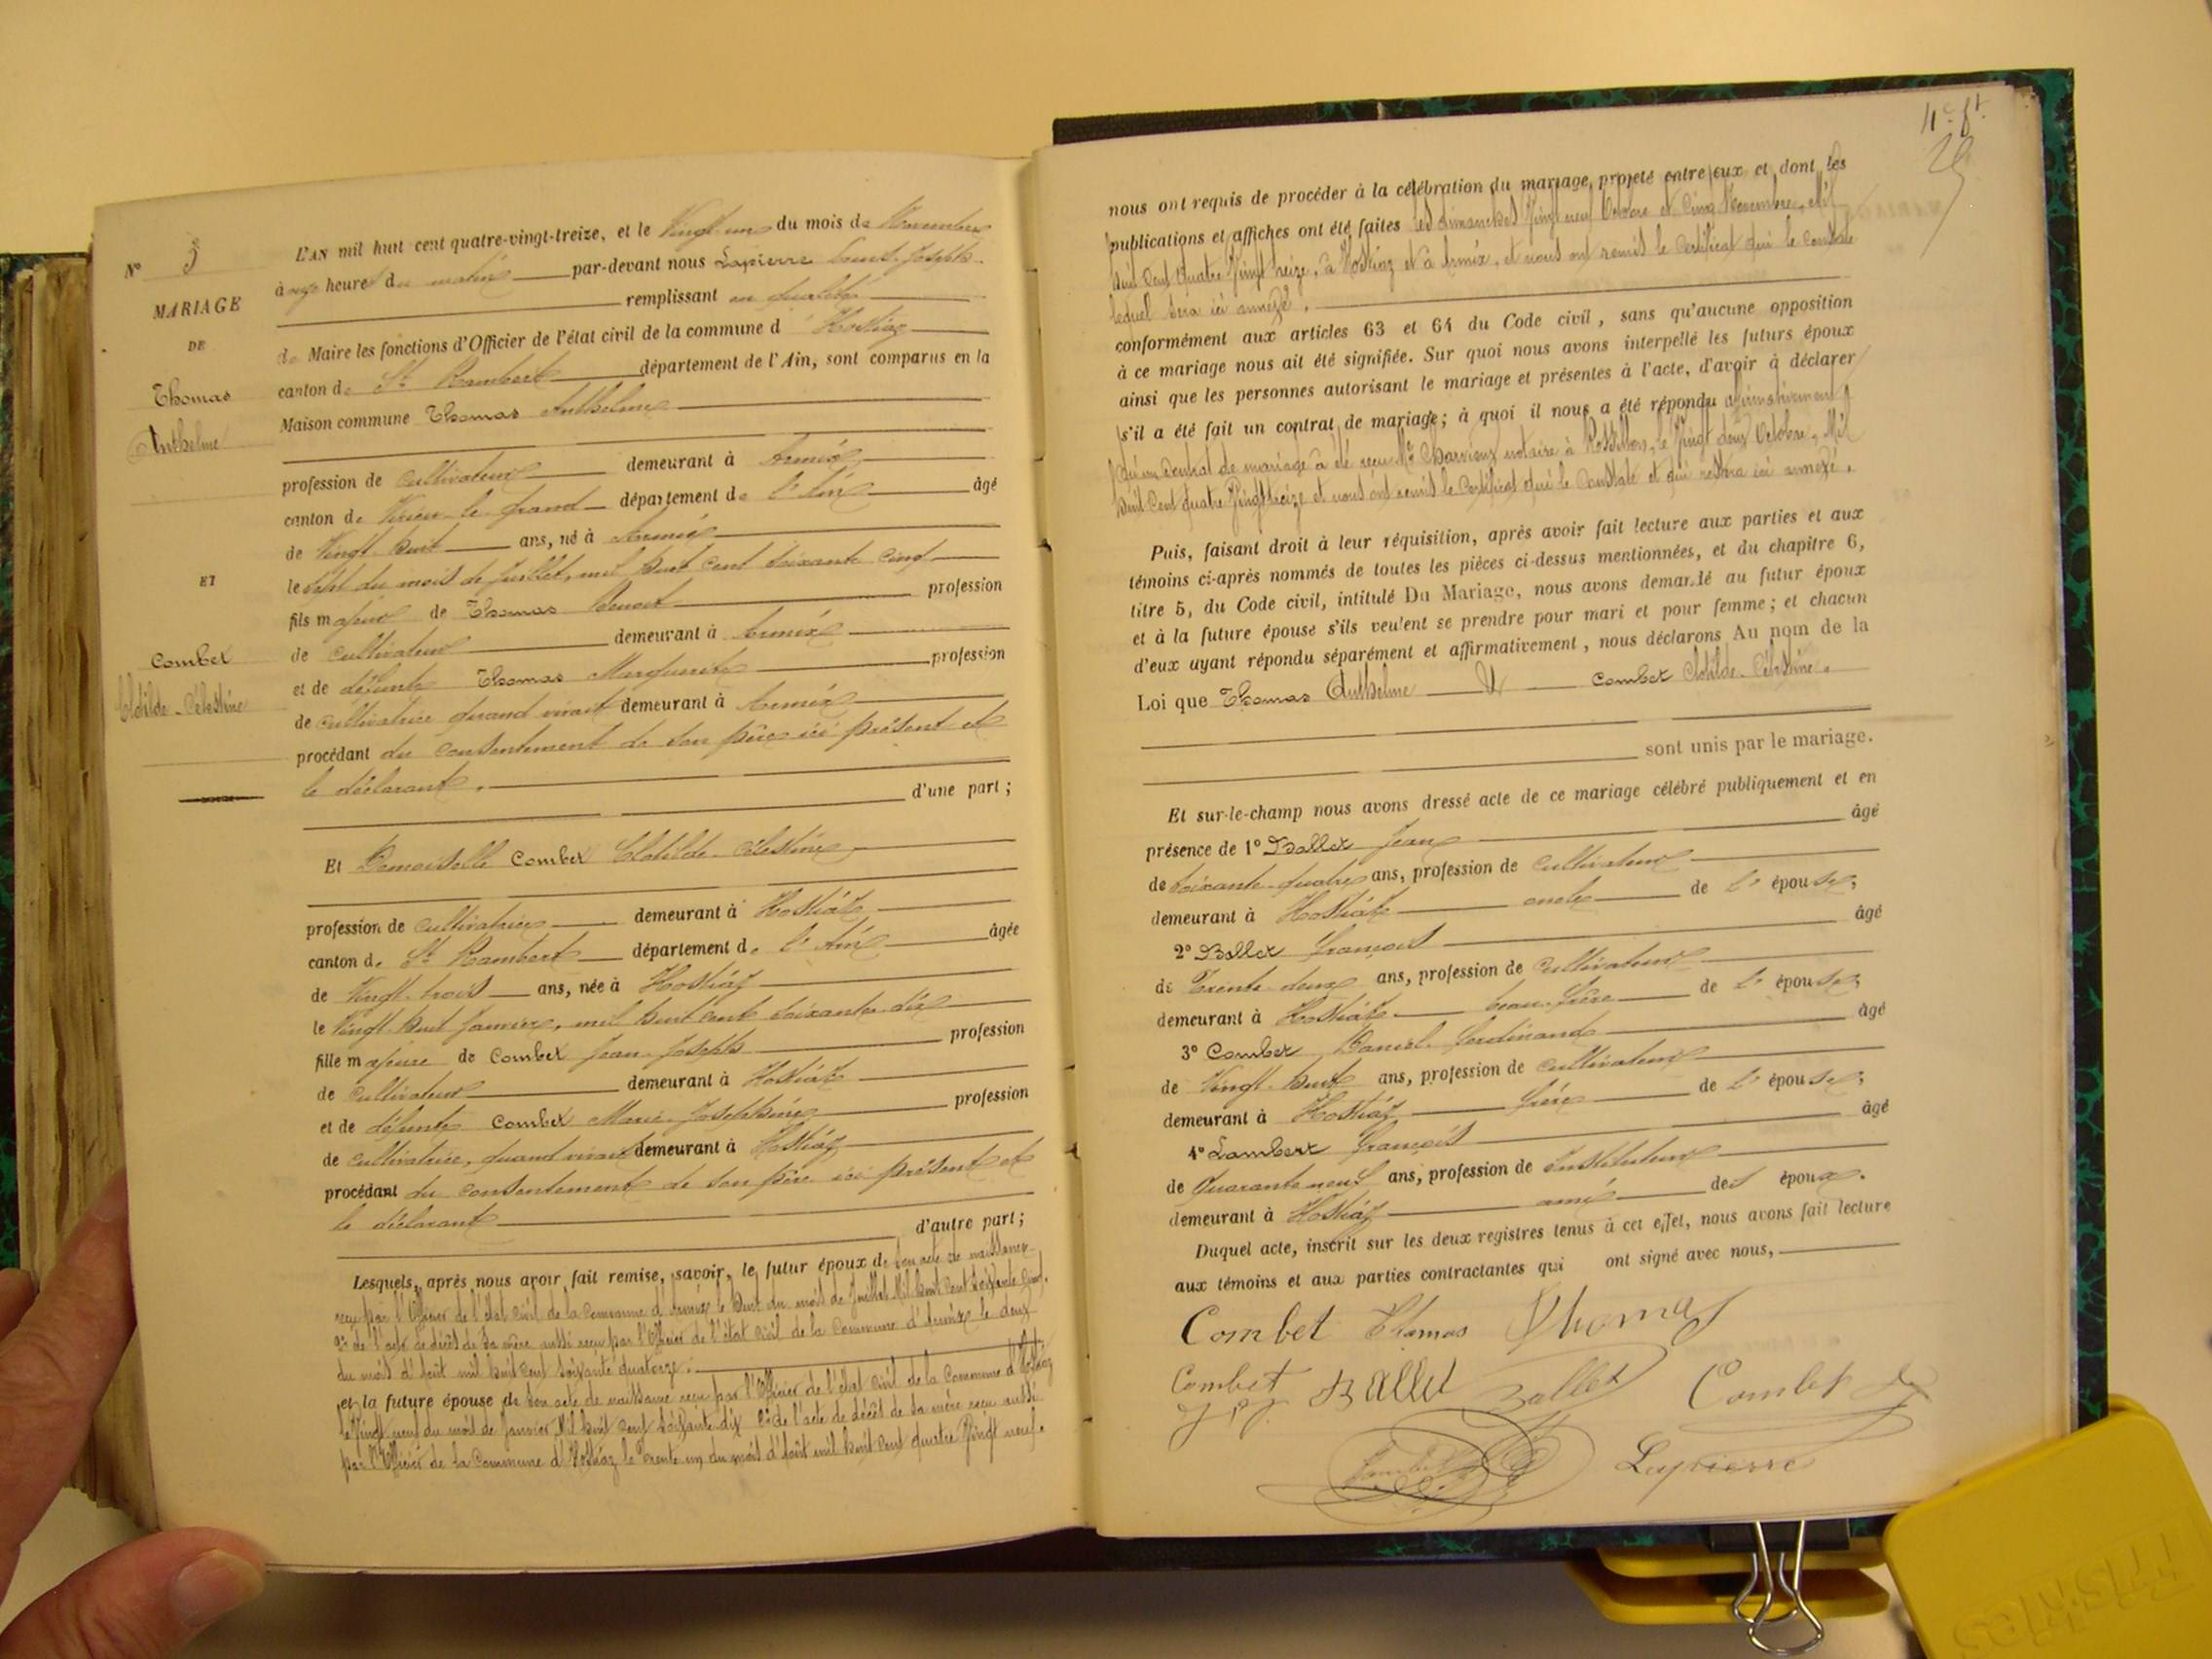 N° 3
MARIAGE
DE
Thomas
Anthelme
ET
Combet
Clotilde-Célestine
L'AN mil huit cent quatre-vingt-treize, et le Vingt-un du mois de Novembre
à onze heures du matin par-devant nous Lapierre Louis-Joseph
remplissant en qualité
de Maire les fonctions d'Officier de l'état civil de la commune d' Hostiaz
canton de St Rambert département de l'Ain, sont comparus en la
Maison commune Thomas Anthelme
profession de cultivateur demeurant à Armix
canton de Virieu-le-Grand département de l'Ain âgé
de Vingt huit ans, né à Armix
le sept du mois de Juillet, mil huit cent soixante cinq
fils majeur de Thomas Benoit profession
de cultivateur demeurant à Armix
et de défunte Thomas Marguerite profession
de cultivatrice quand vivait demeurant à Armix
procédant du consentement de son père ici présent et
le déclarant.
d'une part;
Et Demoiselle Combet Clotilde-Célestine
profession de cultivatrice demeurant à Hostiaz
canton de St Rambert département de l'Ain âgée
de Vingt-trois ans, née à Hostiaz
le Vingt huit Janvier, mil huit cent soixante-dix
fille majeure de Combet Jean-Joseph profession
de cultivateur demeurant à Hostiaz
et de défunte Combet Marie-Joséphine profession
de cultivatrice, quand vivait demeurant à Hostiaz
procédant du consentement de son père ici présent et
le déclarant
d'autre part;
Lesquels, après nous avoir fait remise, savoir, le futur époux de son acte de naissance
reçu par l'Officier de l'état civil de la commune d'Armix le huit du mois de Juillet Mil huit cent soixante cinq,
2° de l'acte de décès de sa mère aussi reçu par l'Officier de l'état civil de la Commune d'Armix le deux
du mois d'Août mil huit cent soixante quatorze.
et la future épouse de son acte de naissance reçu par l'Officier de l'état civil de la Commune d'Hostiaz
le Vingt neuf du mois de Janvier Mil huit cent soixante-dix 2° de l'acte de décès de sa mère reçu aussi
par l'Officier de la Commune d'Hostiaz le trente un du mois d'Août mil huit cent quatre Vingt neuf.
nous ont requis de procéder à la célébration du mariage projeté entre eux et dont les
publications et affiches ont été faites les dimanches Vingt neuf Octobre et Cinq Novembre, Mil
huit Cent Quatre Vingt treize, à Hostiaz et à Armix, et nous ont remis le certificat qui le constate
lequel sera ici annexé.
conformément aux articles 63 et 64 du Code civil, sans qu'aucune opposition
à ce mariage nous ait été signifiée. Sur quoi nous avons interpellé les futurs époux
ainsi que les personnes autorisant le mariage et présentes à l'acte, d'avoir à déclarer
s'il a été fait un contrat de mariage; à quoi il nous a été répondu affirmativement
qu'un contrat de mariage a été reçu Me notaire à Rossillon, le Vingt deux Octobre, Mil
huit Cent quatre Vingt treize et nous ont remis le Certificat qui le constate et qui restera ici annexé.
Puis, faisant droit à leur réquisition, après avoir fait lecture aux parties et aux
témoins ci-après nommés de toutes les pièces ci-dessus mentionnées, et du chapitre 6,
titre 5, du Code civil, intitulé Du Mariage, nous avons demandé au futur époux
et à la future épouse s'ils veulent se prendre pour mari et pour femme; et chacun
d'eux ayant répondu séparément et affirmativement, nous déclarons Au nom de la
Loi que Thomas Anthelme Et Combet Clotilde-Célestine.
sont unis par le mariage.
Et sur-le-champ nous avons dressé acte de ce mariage célébré publiquement et en
présence de 1° Ballet Jean âgé
de soixante-quatre ans, profession de cultivateur
demeurant à Hostiaz oncle de l'épouse;
2° Ballet François âgé
de Trente-deux ans, profession de cultivateur
demeurant à Hostiaz beau-frère de l'épouse;
3° Combet Daniel-Ferdinand âgé
de Vingt-huit ans, profession de cultivateur
demeurant à Hostiaz frère de l'épouse;
4° Lambert François âgé
de Quarante neuf ans, profession de Instituteur
demeurant à Hostiaz ami des époux.
Duquel acte, inscrit sur les deux registres tenus à cet effet, nous avons fait lecture
aux témoins et aux parties contractantes qui ont signé avec nous,
Combet Thomas Thomas
Combet Ballet Ballet Combet
Lapierre